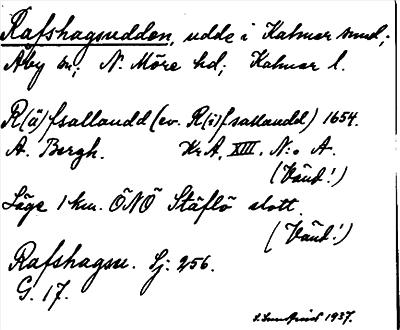 Rafshagsudden, udde i Kalmar sund;
Åby sn; N. Möre hd; Kalmar l.
R(ä)fsallaudd (ev. R(i)fsallaudd) 1654.
A. Bergh. Kr.A. XIII. N:o A.
(Vänd!)
Läge 1 km. ÖNÖ Stäflö slott.
(Vänd!)
Rafshagsu. Lj: 256.
G. 17.
1937.